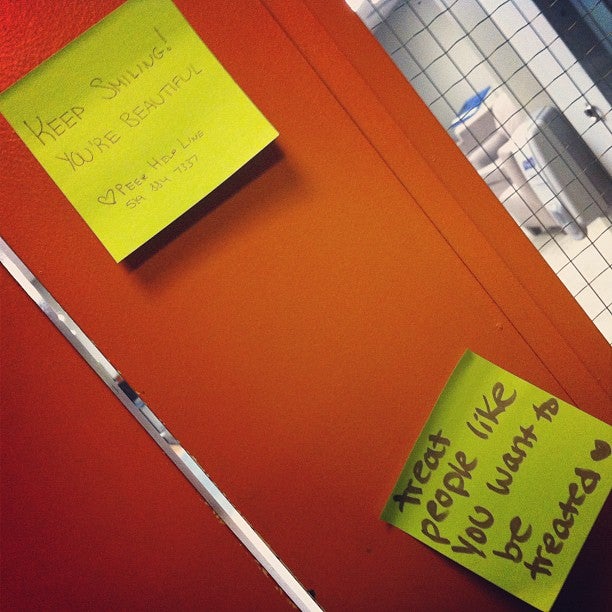 KEEP SMILING!
YOU'RE BEAUTIFUL
♡ PEER HELP LINE
519 884 7337
treat
people like
you want to
be
treated ♥